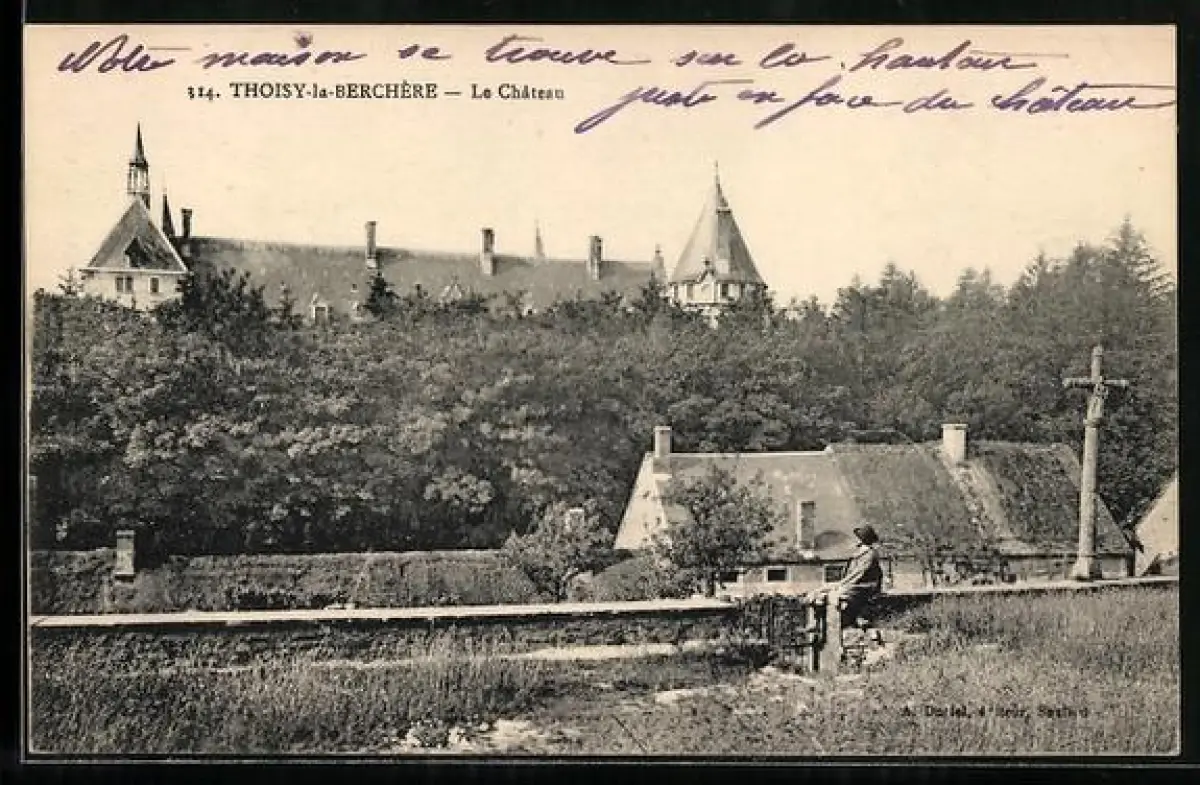 Notre maison se trouve sur la hauteur
314. THOISY-la-BERCHÈRE — Le Château
juste en face du château
A.